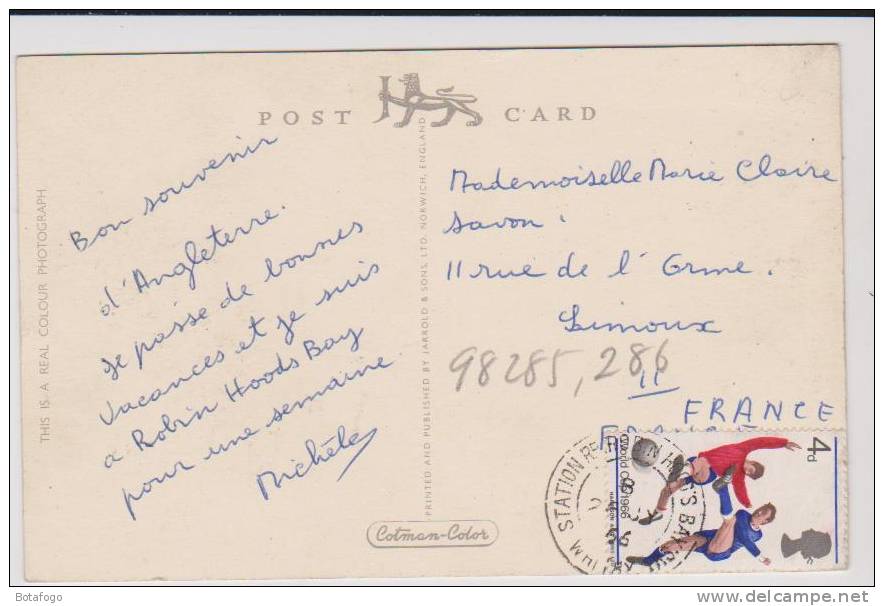 POST CARD
Bon souvenir
d'Angleterre.
Je passe de bonnes
vacances et je suis
a Robin Hoods Bay
pour une semaine
Michèle
THIS IS A REAL COLOUR PHOTOGRAPH
PRINTED AND PUBLISHED BY JARROLD & SONS LTD. NORWICH, ENGLAND
Cotman-Color
Mademoiselle Marie Claire
Savon.
11 rue de l'Orme.
Limoux
98285, 286
11
FRANCE
FRANCE
4d
World Cup 1966
STATION RD. ROBIN HOOD'S BAY
Botafogo
www.delcampe.net